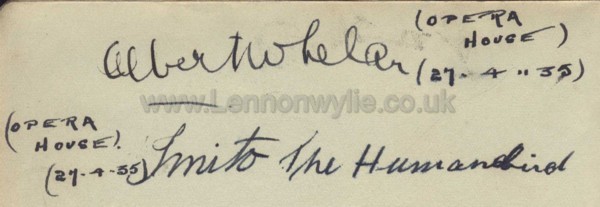 (OPERA
HOUSE)
Albert Whelan (27-4-35)
www.Lennonwylie.co.uk
(OPERA
HOUSE).
(27-4-35) Smito The Humanbird